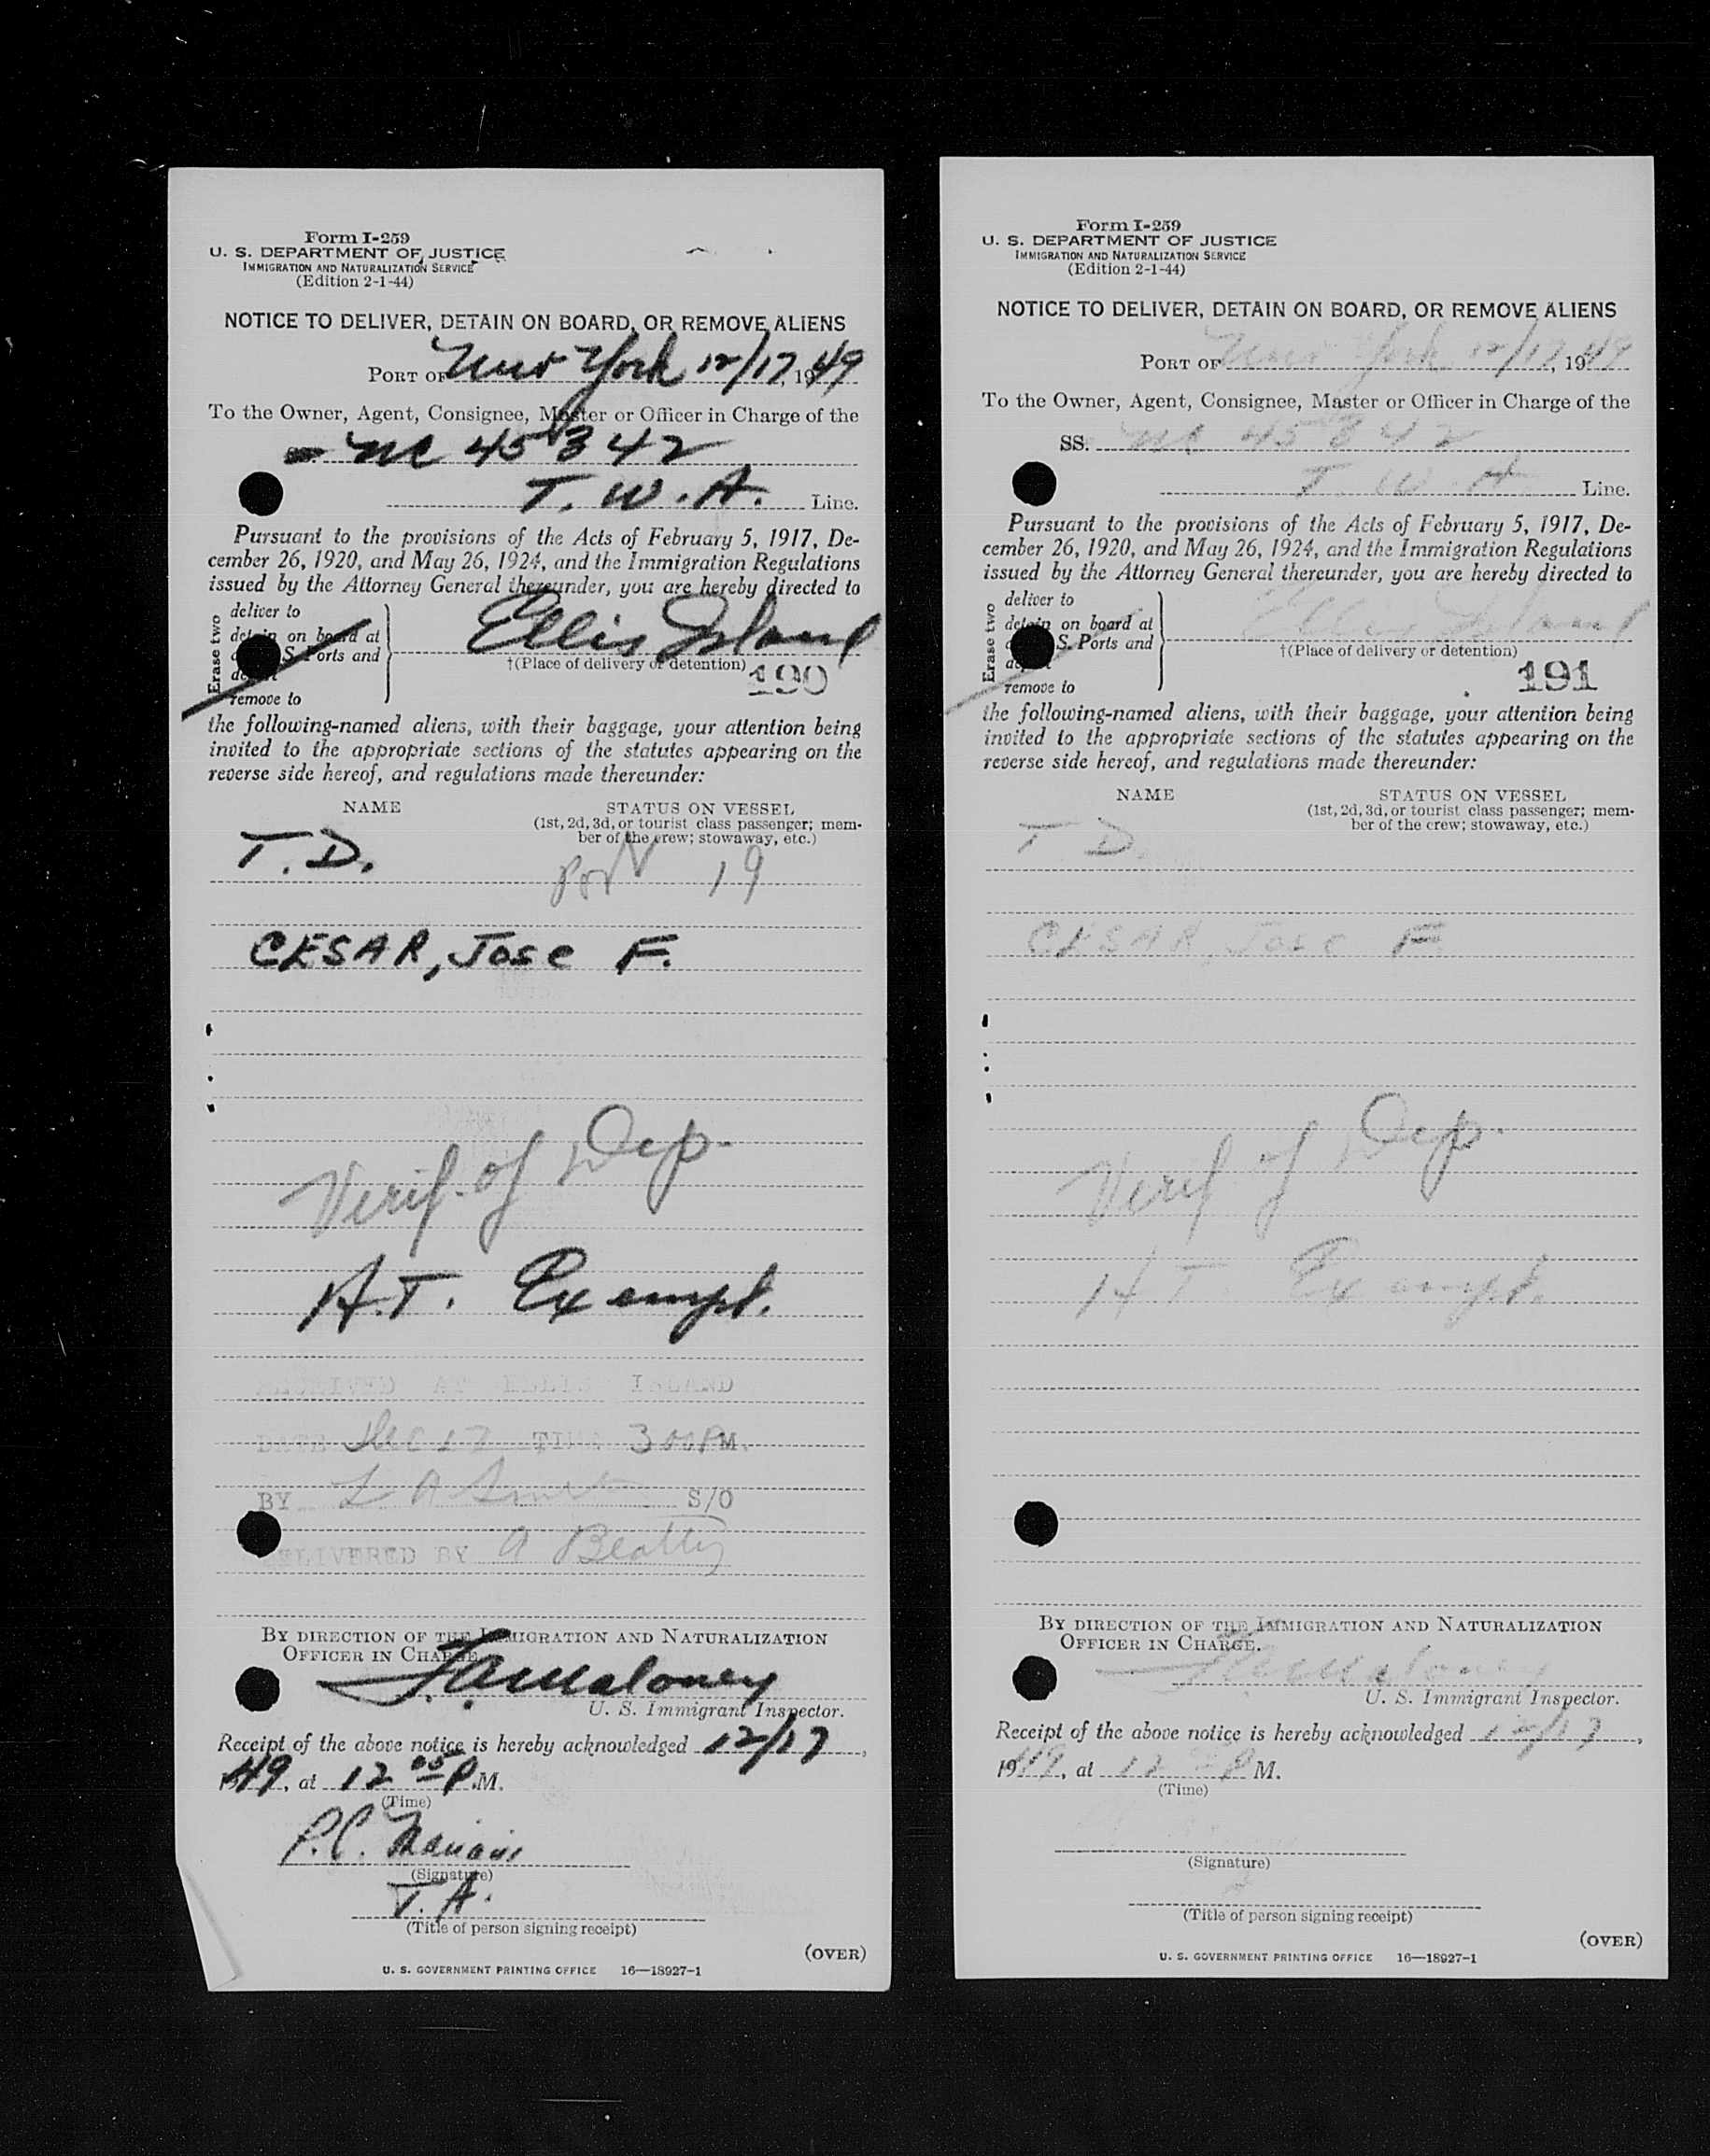 Form I-259
U. S. DEPARTMENT OF JUSTICE
IMMIGRATION AND NATURALIZATION SERVICE
(Edition 2-1-44)
NOTICE TO DELIVER, DETAIN ON BOARD, OR REMOVE ALIENS
PORT OF New York 12/17, 1949
To the Owner, Agent, Consignee, Master or Officer in Charge of the
NC 45342
T. W. A. Line.
Pursuant to the provisions of the Acts of February 5, 1917, De-
cember 26, 1920, and May 26, 1924, and the Immigration Regulations
issued by the Attorney General thereunder, you are hereby directed to
Erase two
deliver to
detain on board at
S. Ports and
remove to
Ellis Island
†(Place of delivery or detention)
190
the following-named aliens, with their baggage, your attention being
invited to the appropriate sections of the statutes appearing on the
reverse side hereof, and regulations made thereunder:
NAME STATUS ON VESSEL
(1st, 2d, 3d, or tourist class passenger; mem-
ber of the crew; stowaway, etc.)
T.D.
19
CESAR, Jose F.
Verif. of Dep.
H.T. Exempt.
ARRIVED AT ELLIS ISLAND
DATE Dec 17 TIME 3 00 PM.
BY L. A. S/O
DELIVERED BY A Beatty
BY DIRECTION OF THE IMMIGRATION AND NATURALIZATION
OFFICER IN CHARGE.
Maloney
U. S. Immigrant Inspector.
Receipt of the above notice is hereby acknowledged 12/17,
1949, at 12 05 P.M.
(Time)
P.C.
(Signature)
T. A.
(Title of person signing receipt)
(OVER)
U. S. GOVERNMENT PRINTING OFFICE 16—18927-1
Form I-259
U. S. DEPARTMENT OF JUSTICE
IMMIGRATION AND NATURALIZATION SERVICE
(Edition 2-1-44)
NOTICE TO DELIVER, DETAIN ON BOARD, OR REMOVE ALIENS
PORT OF New York 12/17, 1949
To the Owner, Agent, Consignee, Master or Officer in Charge of the
SS. NC 45342
T. W. A. Line.
Pursuant to the provisions of the Acts of February 5, 1917, De-
cember 26, 1920, and May 26, 1924, and the Immigration Regulations
issued by the Attorney General thereunder, you are hereby directed to
Erase two
deliver to
detain on board at
S. Ports and
remove to
Ellis Island
†(Place of delivery or detention)
191
the following-named aliens, with their baggage, your attention being
invited to the appropriate sections of the statutes appearing on the
reverse side hereof, and regulations made thereunder:
NAME STATUS ON VESSEL
(1st, 2d, 3d, or tourist class passenger; mem-
ber of the crew; stowaway, etc.)
T D.
CESAR, Jose F
Verif of Dep.
H T. Exempt.
BY DIRECTION OF THE IMMIGRATION AND NATURALIZATION
OFFICER IN CHARGE.
Maloney
U. S. Immigrant Inspector.
Receipt of the above notice is hereby acknowledged 12/17,
1949, at 12 05 P M.
(Time)
(Signature)
(Title of person signing receipt)
(OVER)
U. S. GOVERNMENT PRINTING OFFICE 16—18927-1